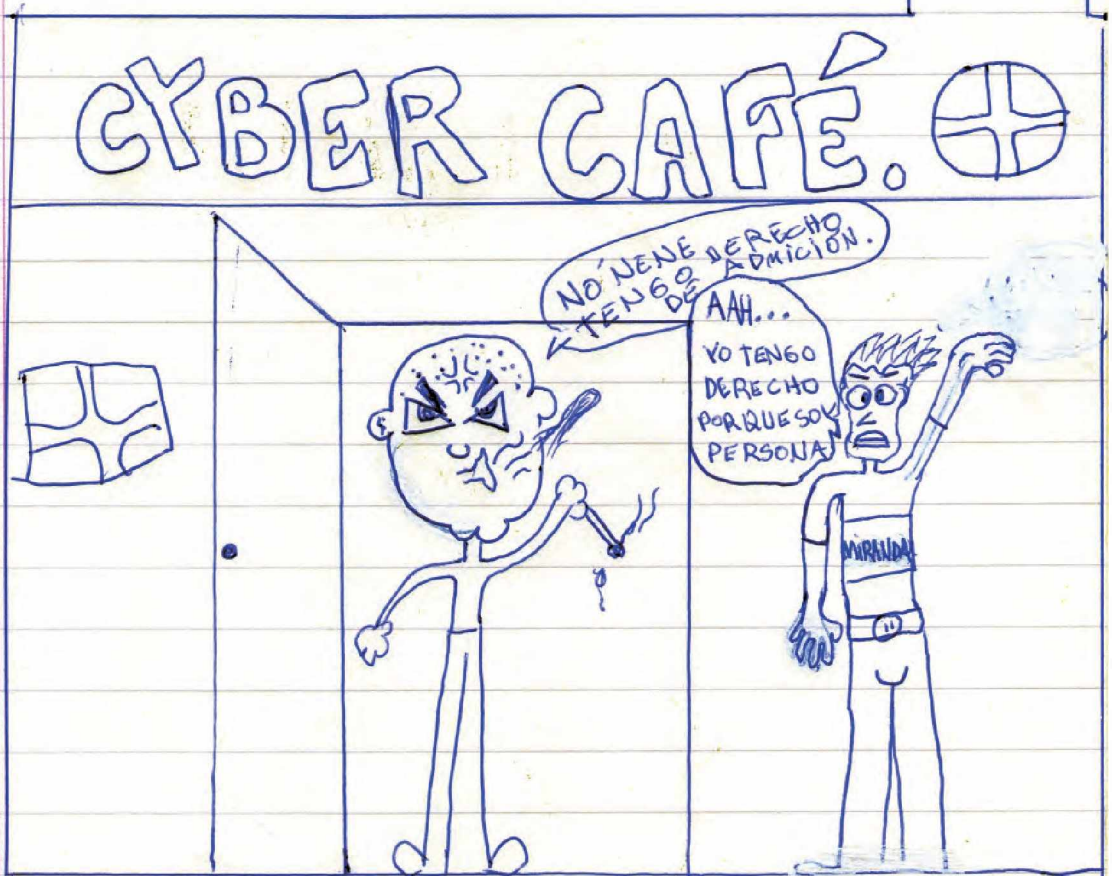 CYBER CAFÉ.
NO NENE DERECHO
TENGO DE ADMICIÓN.
AAH...
YO TENGO
DERECHO
PORQUE SOY
PERSONA
MIRANDA